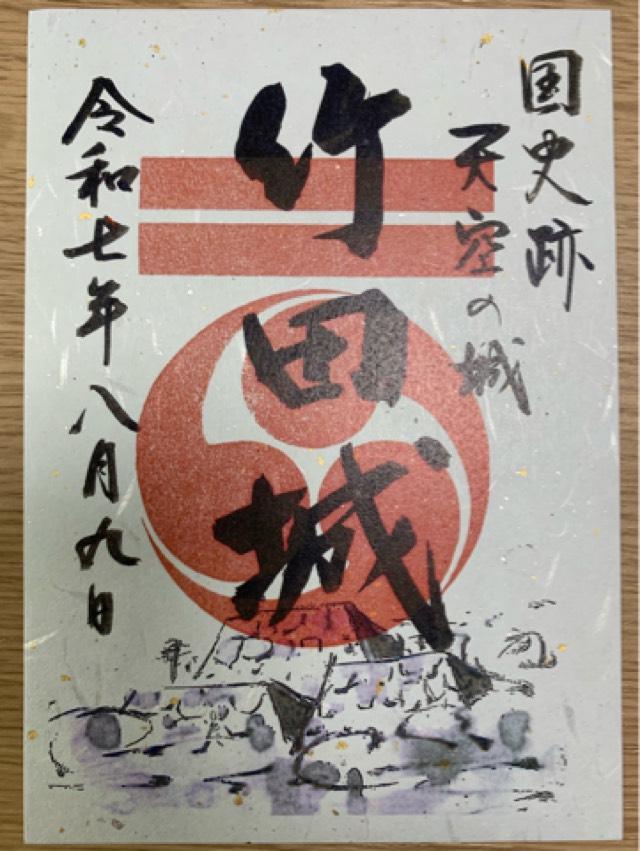 国史跡
天空の城
竹田城
令和七年八月九日